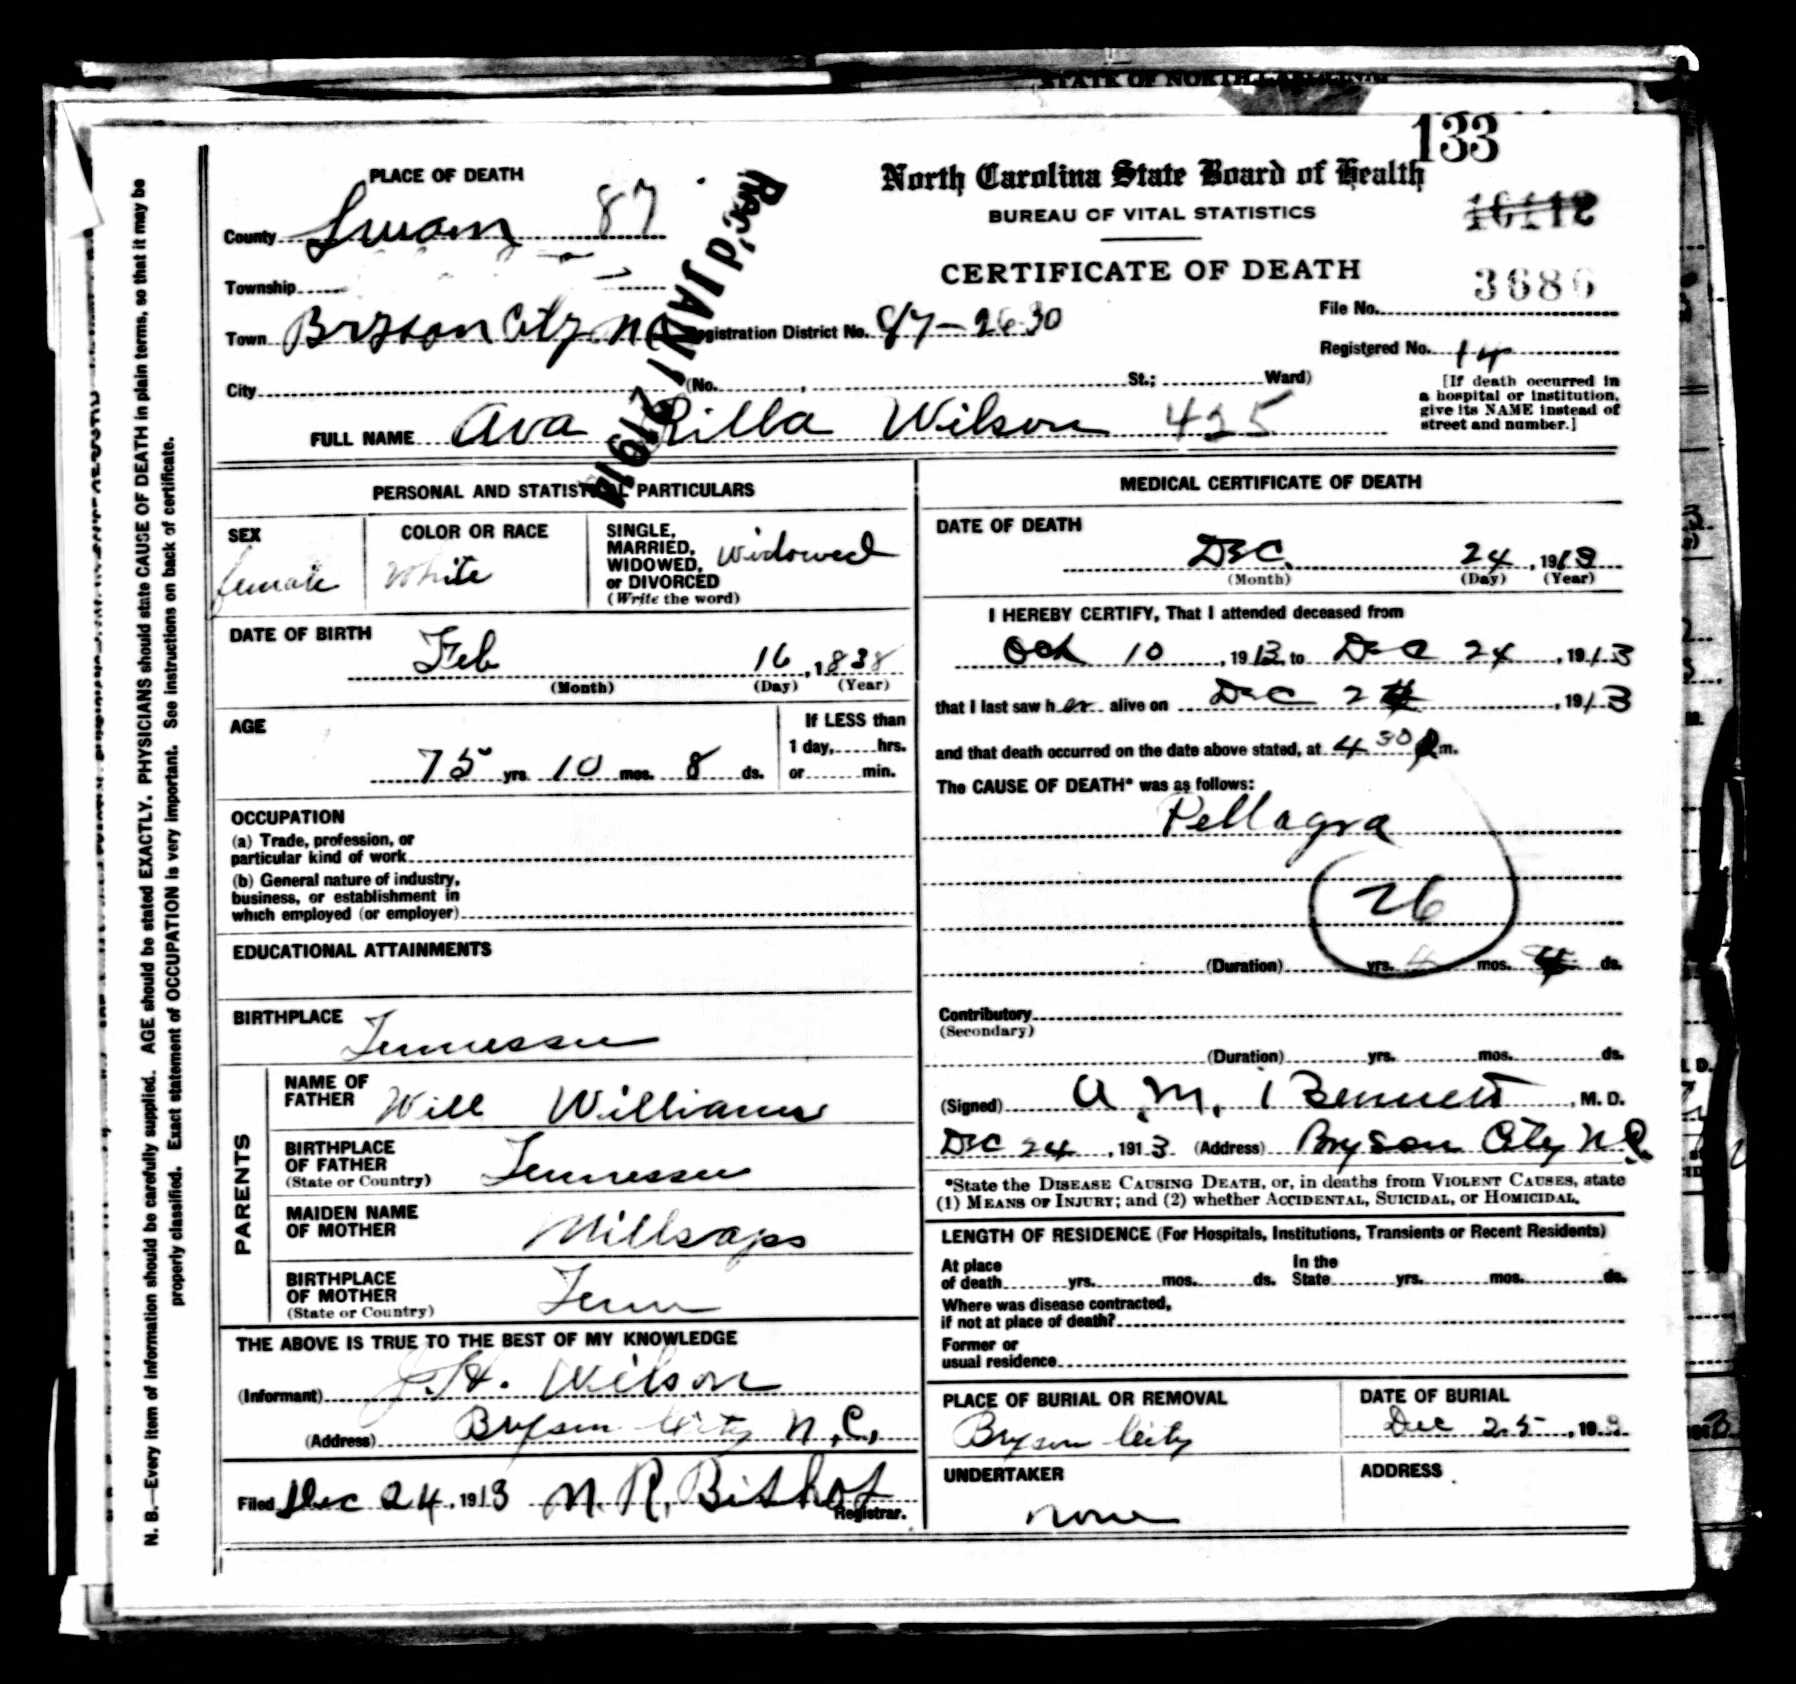 STATE OF NORTH CAROLINA
133
PLACE OF DEATH
North Carolina State Board of Health
BUREAU OF VITAL STATISTICS
16112
County Swain 87
Rec'd JAN 12 1914
CERTIFICATE OF DEATH
3686
Township
File No.
Town Bryson City N C Registration District No. 87-2630
Registered No. 14
City (No. , St.; Ward)
[If death occurred in
a hospital or institution,
give its NAME instead of
street and number.]
FULL NAME Ava Rilla Wilson 425
PERSONAL AND STATISTICAL PARTICULARS
SEX
female
COLOR OR RACE
White
SINGLE,
MARRIED,
WIDOWED,
or DIVORCED
(Write the word)
Widowed
DATE OF BIRTH
Feb 16, 1838
(Month) (Day) (Year)
AGE
75 yrs. 10 mos. 8 ds.
If LESS than
1 day, hrs.
or min.
OCCUPATION
(a) Trade, profession, or
particular kind of work
(b) General nature of industry,
business, or establishment in
which employed (or employer)
EDUCATIONAL ATTAINMENTS
BIRTHPLACE
Tennessee
PARENTS
NAME OF
FATHER
Will Williams
BIRTHPLACE
OF FATHER
(State or Country)
Tennessee
MAIDEN NAME
OF MOTHER
Millsaps
BIRTHPLACE
OF MOTHER
(State or Country)
Tenn
THE ABOVE IS TRUE TO THE BEST OF MY KNOWLEDGE
(Informant) J. H. Wilson
(Address) Bryson City N.C.
Filed Dec 24, 1913 N. R. Bishop
Registrar.
MEDICAL CERTIFICATE OF DEATH
DATE OF DEATH
Dec. 24, 1913
(Month) (Day) (Year)
I HEREBY CERTIFY, That I attended deceased from
Oct 10, 1913, to Dec 24, 1913
that I last saw her alive on Dec 24, 1913
and that death occurred on the date above stated, at 4 30 P m.
The CAUSE OF DEATH* was as follows:
Pellagra
26
(Duration) yrs. mos. ds.
Contributory
(Secondary)
(Duration) yrs. mos. ds.
(Signed) A. M. Bennett, M. D.
Dec 24, 1913 (Address) Bryson City N C
*State the DISEASE CAUSING DEATH, or, in deaths from VIOLENT CAUSES, state
(1) MEANS OF INJURY; and (2) whether ACCIDENTAL, SUICIDAL, or HOMICIDAL.
LENGTH OF RESIDENCE (For Hospitals, Institutions, Transients or Recent Residents)
At place
of death yrs. mos. ds.
In the
State yrs. mos. ds.
Where was disease contracted,
if not at place of death?
Former or
usual residence
PLACE OF BURIAL OR REMOVAL
Bryson City
DATE OF BURIAL
Dec 25, 19
UNDERTAKER
none
ADDRESS
N. B.—Every item of information should be carefully supplied. AGE should be stated EXACTLY. PHYSICIANS should state CAUSE OF DEATH in plain terms, so that it may be
properly classified. Exact statement of OCCUPATION is very important. See instructions on back of certificate.